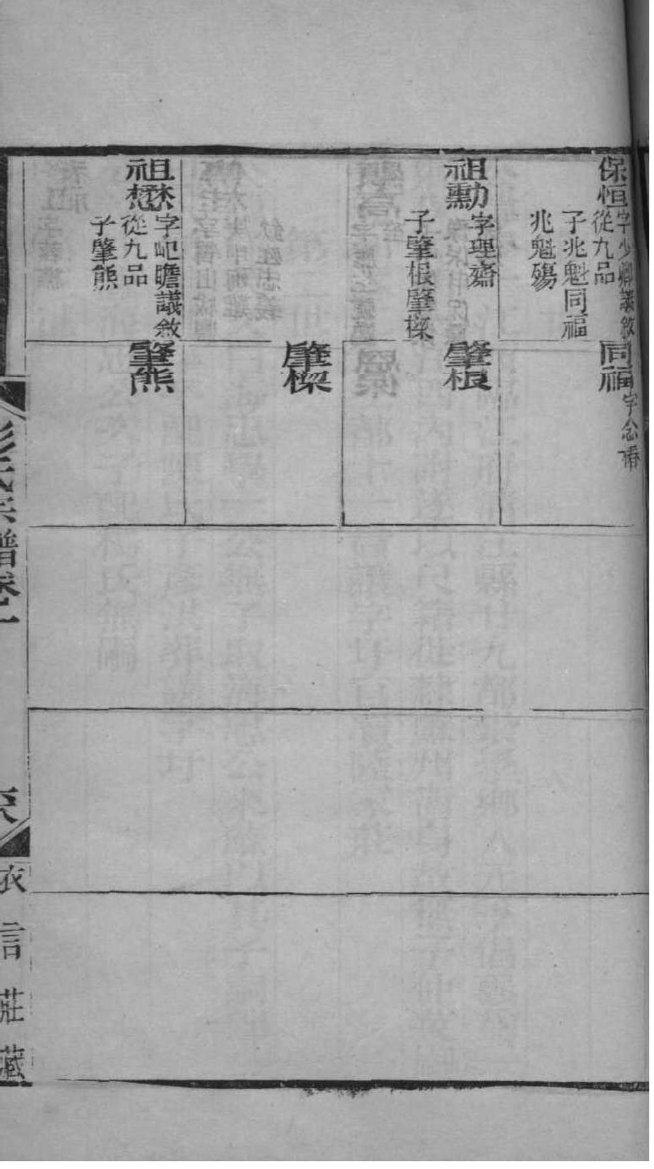 保恒字少卿議敘
從九品
子兆魁同福
兆魁殤
祖勳字理齋
子肇根肇樑
祖懋字屺瞻議敘
從九品
子肇熊
同福字念
肇根
肇樑
肇熊
彭氏宗譜卷一
衣言莊藏